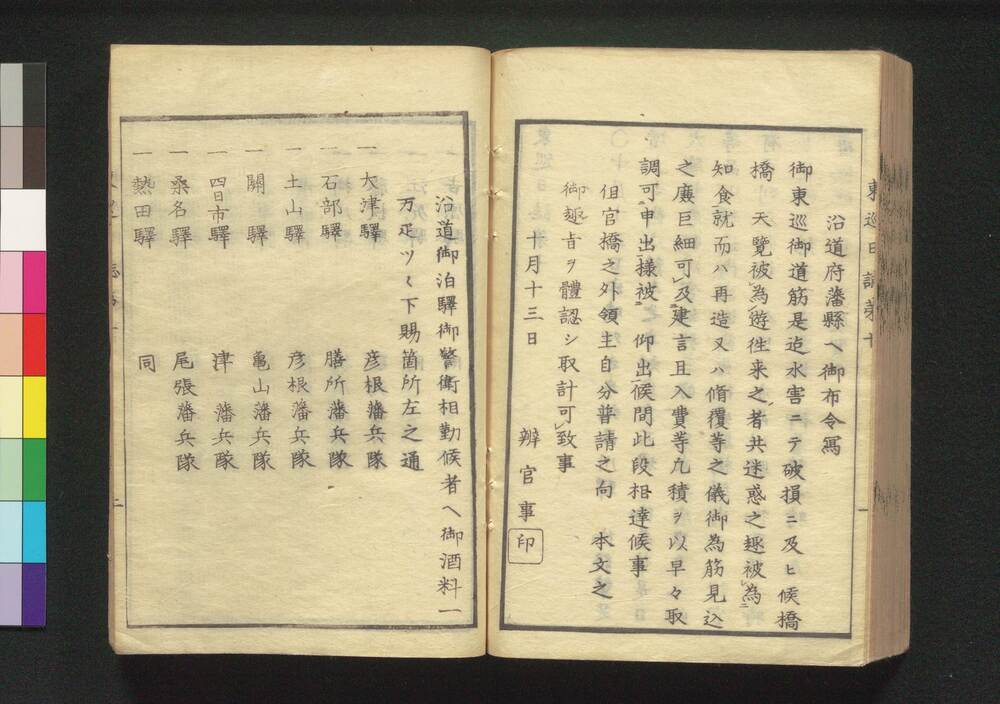 東巡日誌第十
沿道府藩縣ヘ御布令寫
御東巡御道筋是迠水害ニテ破損ニ及ヒ候橋
橋　天覽被爲遊徃来之者共迷惑之趣被爲
知食就而ハ再造又ハ脩覆等之儀御為筋見込
之廉巨細可及建言且入費等凢積ヲ以早々取
調可申出様被　仰出候間此段相達候事
但官橋之外領主自分普請之向　本文之
御趣旨ヲ體認シ取計可致事
十月十三日
辨官事印
沿道御泊驛御警衛相勤候者ヘ御酒料一
万疋ツヽ下賜箇所左之通
一大津驛　彦根藩兵隊
一石部驛　膳所藩兵隊
一土山驛　彦根藩兵隊
一關驛　亀山藩兵隊
一四日市驛　津藩兵隊
一桑名驛　尾張藩兵隊
一熱田驛　同